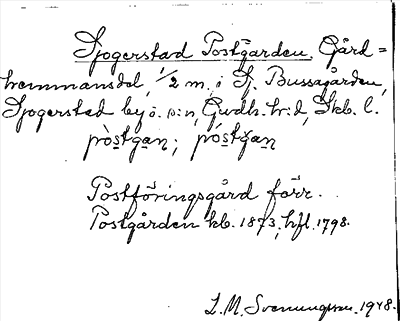 Sjogerstad Postgården. Gård =
hemmansdel, 1/2 m., i Sj. Bussagården,
Sjogerstad by ö. s:n, Gudh. h:d, Skb. l.
pòstgan; póstgan
Postföringsgård förr.
Postgården kb. 1873, hfl. 1798.
L. M. Svenungsson. 1948.